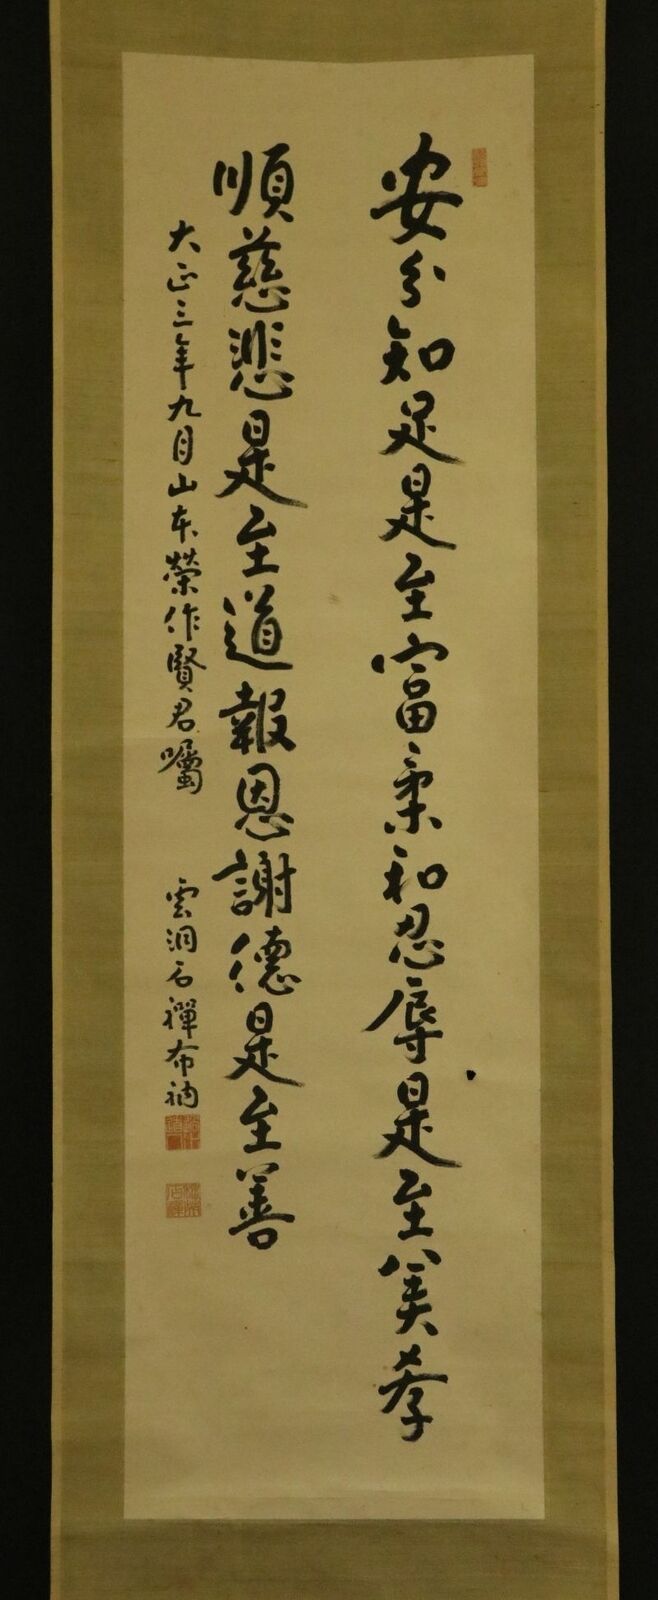 安分知足是至富柔和忍辱是至美孝
順慈悲是至道報恩謝德是至善
大正三年九月山本榮作賢君囑
雲洞石禪布衲